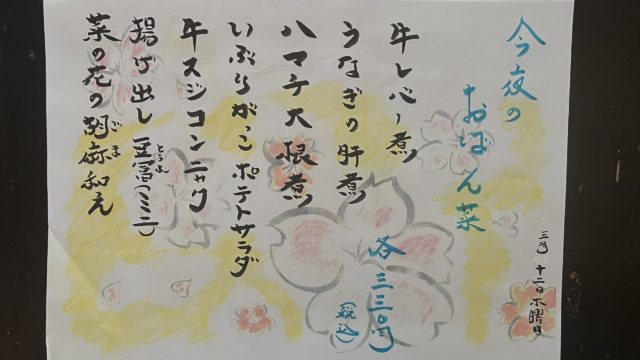 今夜の
おばん菜
三月十二日木曜日
牛レバー煮
うなぎの肝煮
ハマチ大根煮
いぶりがっこポテトサラダ
牛スジコンニャク
揚げ出し豆富(ミニ)
とうふ
菜の花の胡麻和え
ごま
各三三〇円
(税込)